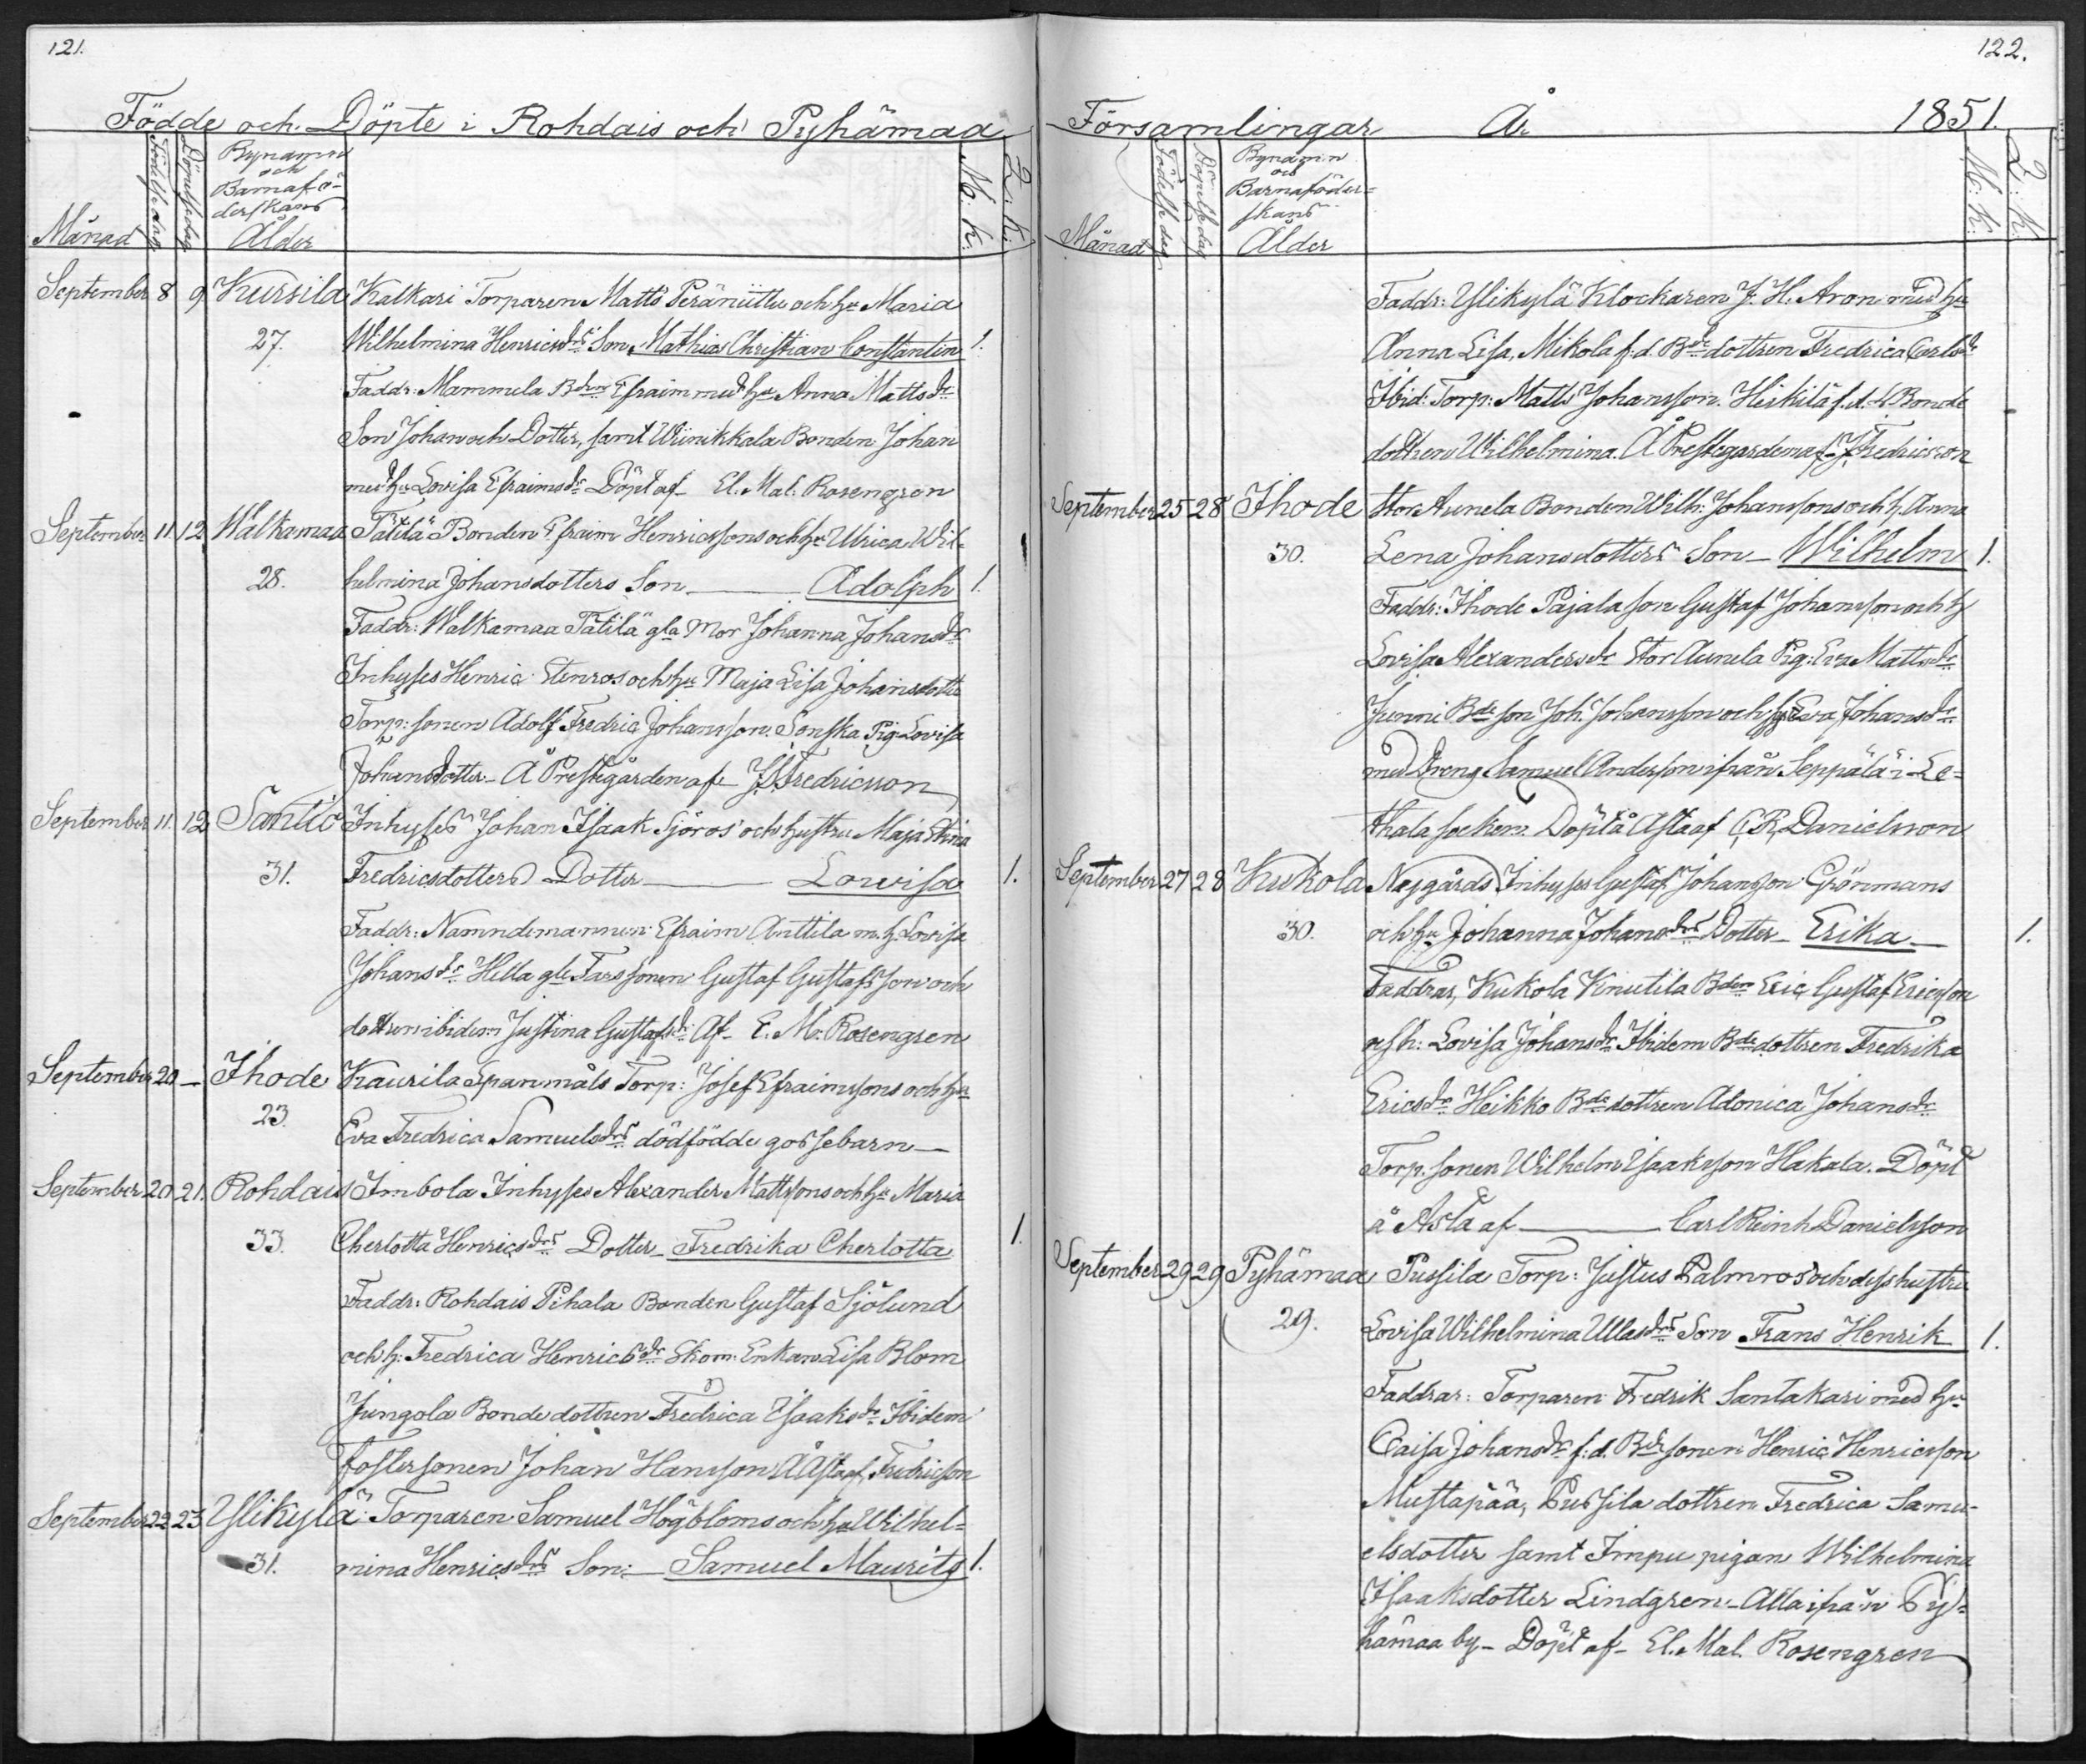 121.
Födde och Döpte i Rohdais och Pyhämaa
Månad
Födelsedag
Döpelsedag
Bynamn
och
Barnafö-
derskans
Ålder
M. K.
Q. K.
September 8 9 Kursila Kalkari Torparen Matts Peräniittus och hu Maria
27. Wilhelmina Henricsdrs Son Mathias Christian Constantin 1.
Faddr: Mammela Bden Efraim med hu Anna Mattsdr
Son Johan och Dotter, samt Wiinikkala Bonden Johan
med hu Lovisa Efraimsdr Döpt af El. Mal. Rosengren
September 11. 12 Walkamaa Tätilä Bonden Efraim Henricssons och hu Ulrica Wil-
28. helmina Johansdotters Son Adolph 1.
Faddr: Walkamaa Tätilä gla Mor Johanna Johansdr
Inhyses Henric Stenros och hu Maja Lisa Johansdotter
Torp: sonen Adolf Fredric Johansson. Sonska Pig. Lovisa
Johansdotter Å Prestgården af Fredricsson
September 11. 12 Santio Inhyses Johan Isaak Sjöros och hustru Maja Stina
31. Fredricsdotters Dotter Lovisa 1.
Faddr: Namndemannen Efraim Anttila m. h. Lovisa
Johansdr Hella gle Fars sonen Gustaf Gustafsson och
dottren ibidem Justina Gustafsdr Af E. M. Rosengren
September 20 – Ihode Kaurila Spanmåls Torp: Josef Efraimssons och hu
23. Eva Fredrica Samuelsdrs dödfödde gossebarn
September 20 21. Rohdais Imbola Inhyses Alexander Mattssons och hu Maria
33. Cherlotta Henricsdrs Dotter Fredrika Cherlotta 1.
Faddr: Rohdais Pihala Bonden Gustaf Sjölund
och h. Fredrica Henricsdr Skom. Enkan Lisa Blom
Jungola Bondedottren Fredrica Isaksdr Ibidem
fostersonen Johan Hansson Å Asta af Fredricsson
September 22 23 Ylikylä Torparen Samuel Högbloms och hu Wilhel=
31. mina Henricsdrs Son: Samuel Mauritz 1.
122.
Församlingar År 1851.
Månad
Födelsedag
Döpelsedag
Bynamn
och
Barnaföder=
skans
Ålder
M. K.
Q. K.
Faddr: Ylikylä Klockaren J. H. Aron med hu
Anna Lisa, Mikola f.d. Bde dottren Fredrica Carlsdr
Ibid: Torp: Matts Johansson. Heikilä f.d. Bonde
dottren Wilhelmina. Å Prestegården af Fredricsson
September 25 28 Ihode Stor Aunela Bonden Wilh: Johanssons och h. Anna
30. Lena Johansdotters Son Wilhelm 1.
Faddr: Ihode Pajala son Gustaf Johansson och h
Lovisa Alexandersdr Stor Aunela Pig: Eva Mattsdr
Junni Bde son Joh. Johansson och hu Eva Johansdr
med Dreng Samuel Andersson ifrån Seppälä i Le=
thala socken. Döpt å Asta af C. R. Danielsson
September 27 28 Kukola Nejgårds Inhyses Gustaf Johansson Grönmans
30. och hu Johanna Johansdrs Dotter Erika 1.
Faddrar, Kukola Knutila Bden Eric Gustaf Ericsson
och h: Lovisa Johansdr Ibidem Bde dottren Fredrika
Ericsdr Heikko Bde dottren Adonica Johansdr
Torp. sonen Wilhelm Isaaksson Hakala. Döpt
å Asta af Carl Reinh Danielsson
September 29 29 Pyhämaa Pussila Torp: Justus Palmros och dess hustru
29. Lovisa Wilhelmina Ullasdrs Son Frans Henrik 1.
Faddrar: Torparen Fredrik Santakari med hu
Caisa Johansdr f.d. Bde sonen Henric Henricsson
Mustapää, Pussila dottren Fredrica Samu-
elsdotter samt Impu pigan Wilhelmina
Isaaksdotter Lindgren. Alla ifrån Py=
hämaa by Döpt af El. Mal. Rosengren